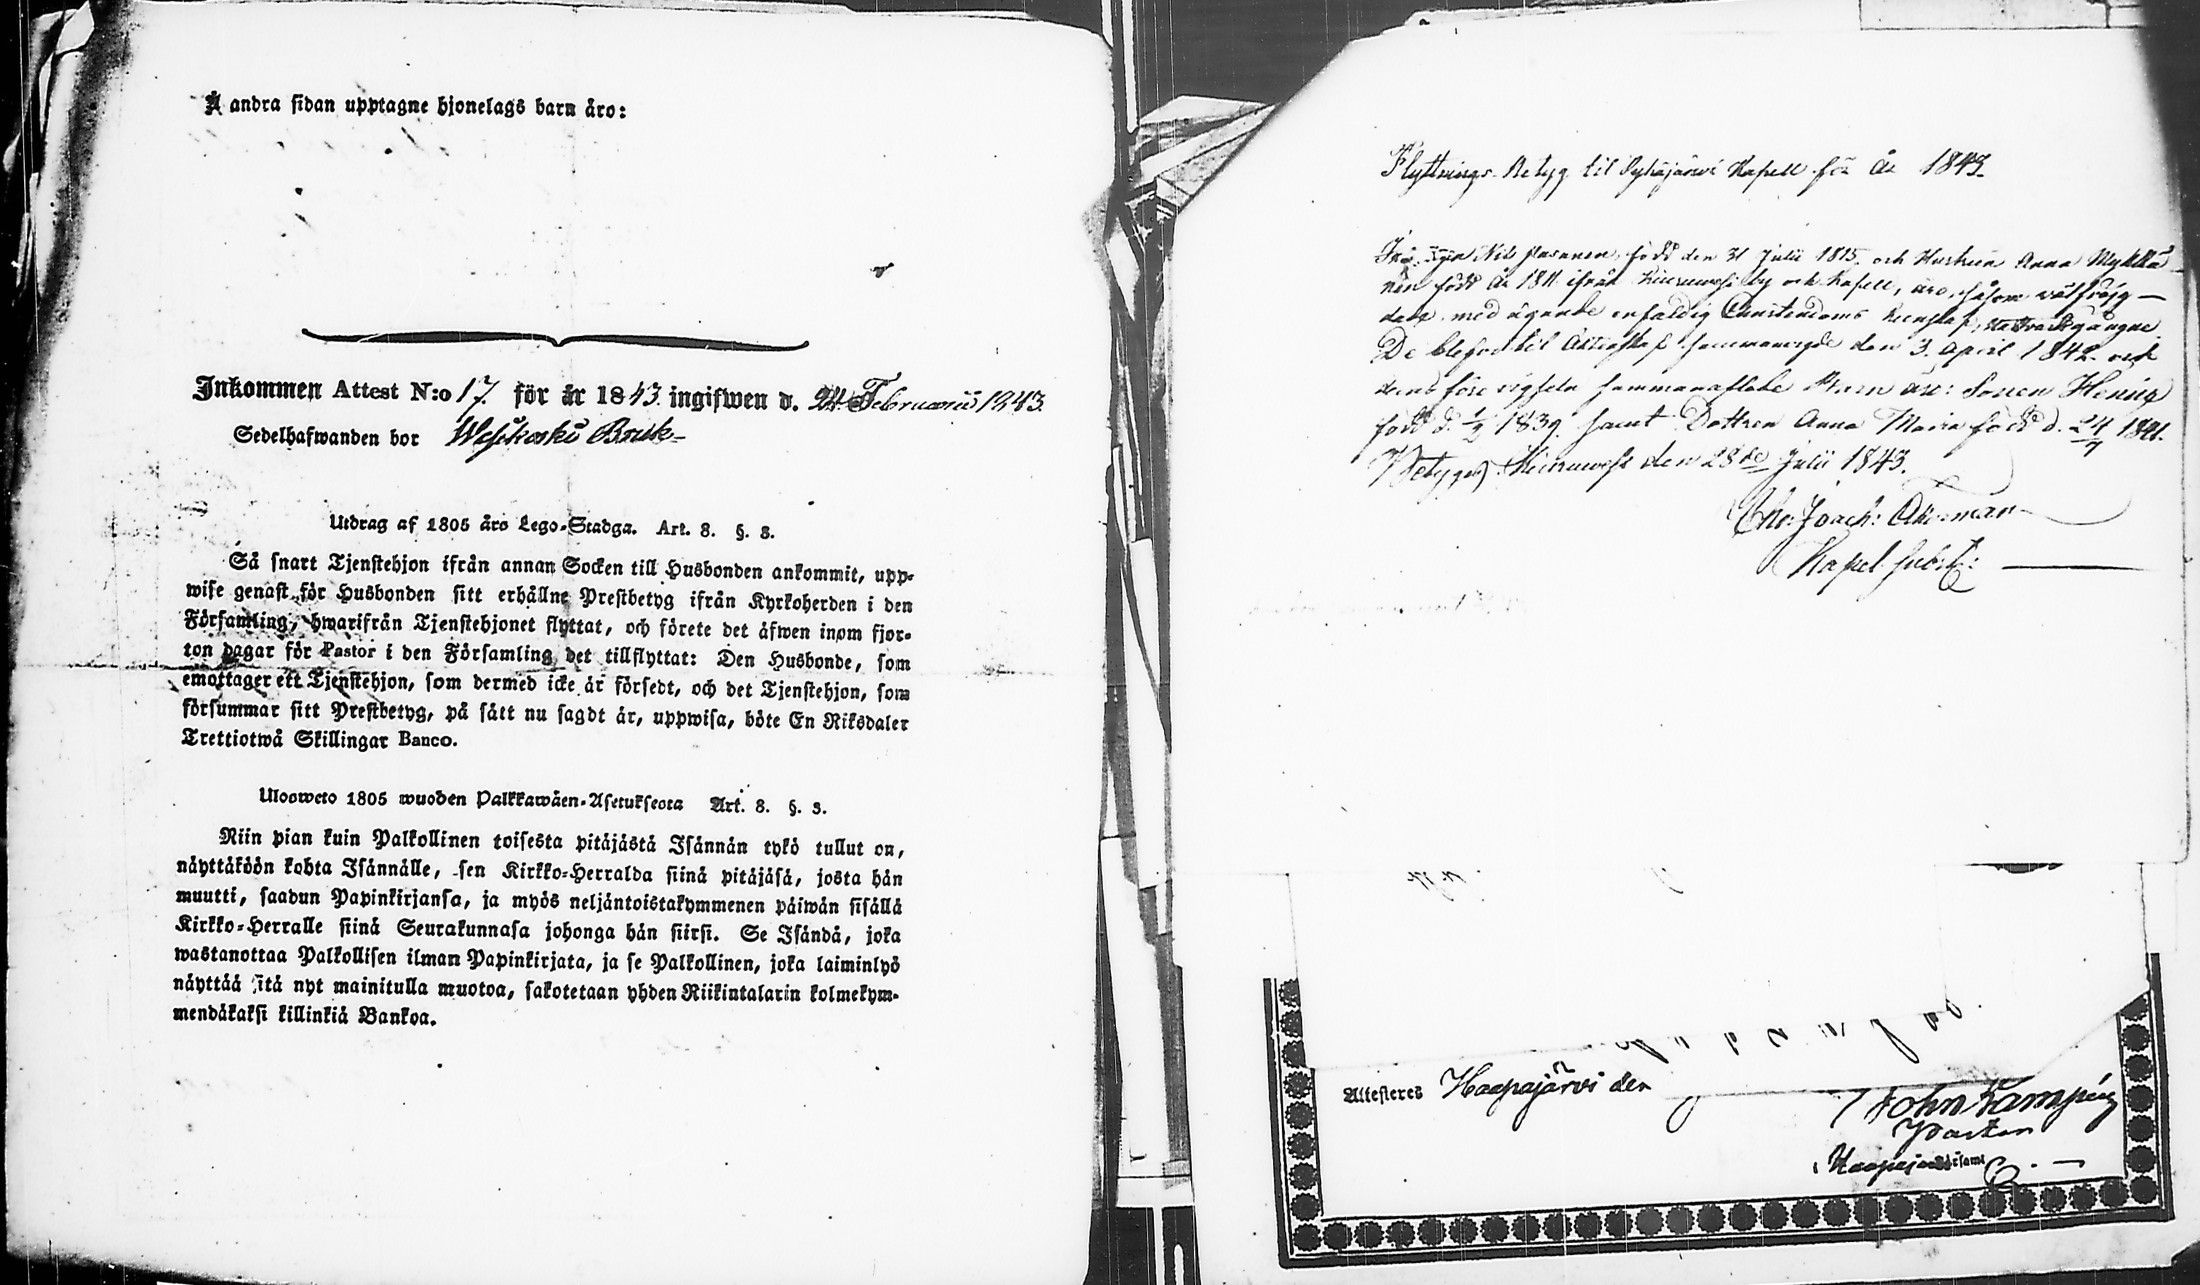 Å andra sidan upptagne hjonelags barn äro:
Inkommen Attest N:o 17. för år 1843. ingifwen d. 24 Februarii 1843.
Sedelhafwanden bor Wesikoski Bruk
Utdrag af 1805 års Lego-Stadga. Art. 8. §. 3.
Så snart Tjenstehjon ifrån annan Socken till Husbonden ankommit, upp-
wise genast för Husbonden sitt erhållne Prestbetyg ifrån Kyrkoherden i den
Församling, hwarifrån Tjenstehjonet flyttat, och förete det äfwen inom fjor-
ton dagar för Pastor i den Församling det tillflyttat: Den Husbonde, som
emottager ett Tjenstehjon, som dermed icke är försedt, och det Tjenstehjon, som
försummar sitt Prestbetyg, på sätt nu sagdt är, uppwisa, böte En Riksdaler
Trettiotwå Skillingar Banco.
Ulosweto 1805 wuoden Palkkawäen-Asetuksesta Art. 8. §. 3.
Niin pian kuin Palkollinen toisesta pitäjästä Isännän tykö tullut on,
näyttäköön kohta Isännälle, sen Kirkko-Herralda siinä pitäjäsä, josta hän
muutti, saadun Papinkirjansa, ja myös neljäntoistakymmenen päiwän sisällä
Kirkko-Herralle siinä Seurakunnasa johonga hän siirsi. Se Isändä, joka
wastanottaa Palkollisen ilman Papinkirjata, ja se Palkollinen, joka laiminlyö
näyttää sitä nyt mainitulla muotoa, sakotetaan yhden Riikintalarin kolmekym-
mendäkaksi killinkiä Bankoa.
Flyttnings-Betyg til Pyhäjärwi Kapell för år 1843.
Nils Hasanen, född den 31 Julii 1815. och Hustrun Anna Mykkä-
nen född år 1811 ifrån Kiuruwesi by och Kapell, äro, såsom välfräjd-
dade med ägande enfaldig Christendoms kunskap, Nattvardgångne
De blefvo til Äktenskap sammanvigde den 3. April 1842. och
deras före vigseln sammanaflade Barn äro: Sonen Henrig
född d. 1/2 1839. samt Dottren Anna Maria född d. 24/7 1841.
Betygar, Kiuruwesi den 28de Julii 1843.
Chr: Joach: Akerman
Kapel. subst:
Attesteres Haapajärvi den
John Lampén
Pastor
i Haapajärvi